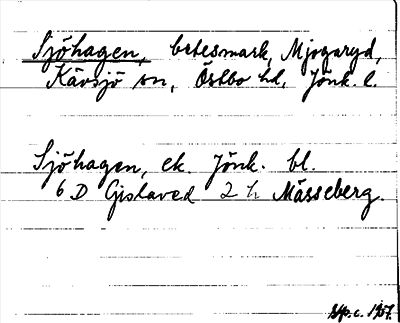 Sjöhagen, betesmark, Mjogaryd,
Kävsjö sn, Östbo hd, Jönk. l.
Sjöhagen, ek. Jönk. bl.
6 D Gislaved 2 h Mässeberg.
1957.